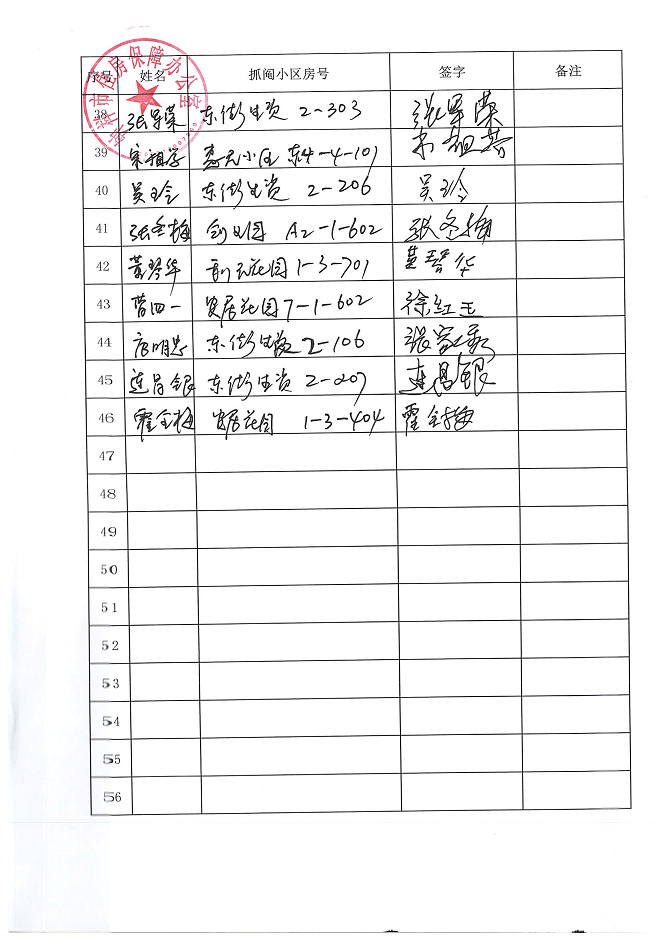 市住房保障办公室
序号 姓名 抓阄小区房号 签字 备注
38 张军荣 东街生资 2-303 张军荣
39 小区 东4-4-101
40 吴玉玲 东街生资 2-206 吴玲
41 张冬梅 A2-1-602 张冬梅
42 黄琴华 花园1-3-701 黄琴华
43 曹四一 安居花园7-1-602 徐红玉
44 唐明 东街生资 2-106 张
45 连昌银 东街生资 2-207 连昌银
46 霍金梅 安居花园 1-3-404 霍金梅
47
48
49
50
51
52
53
54
55
56